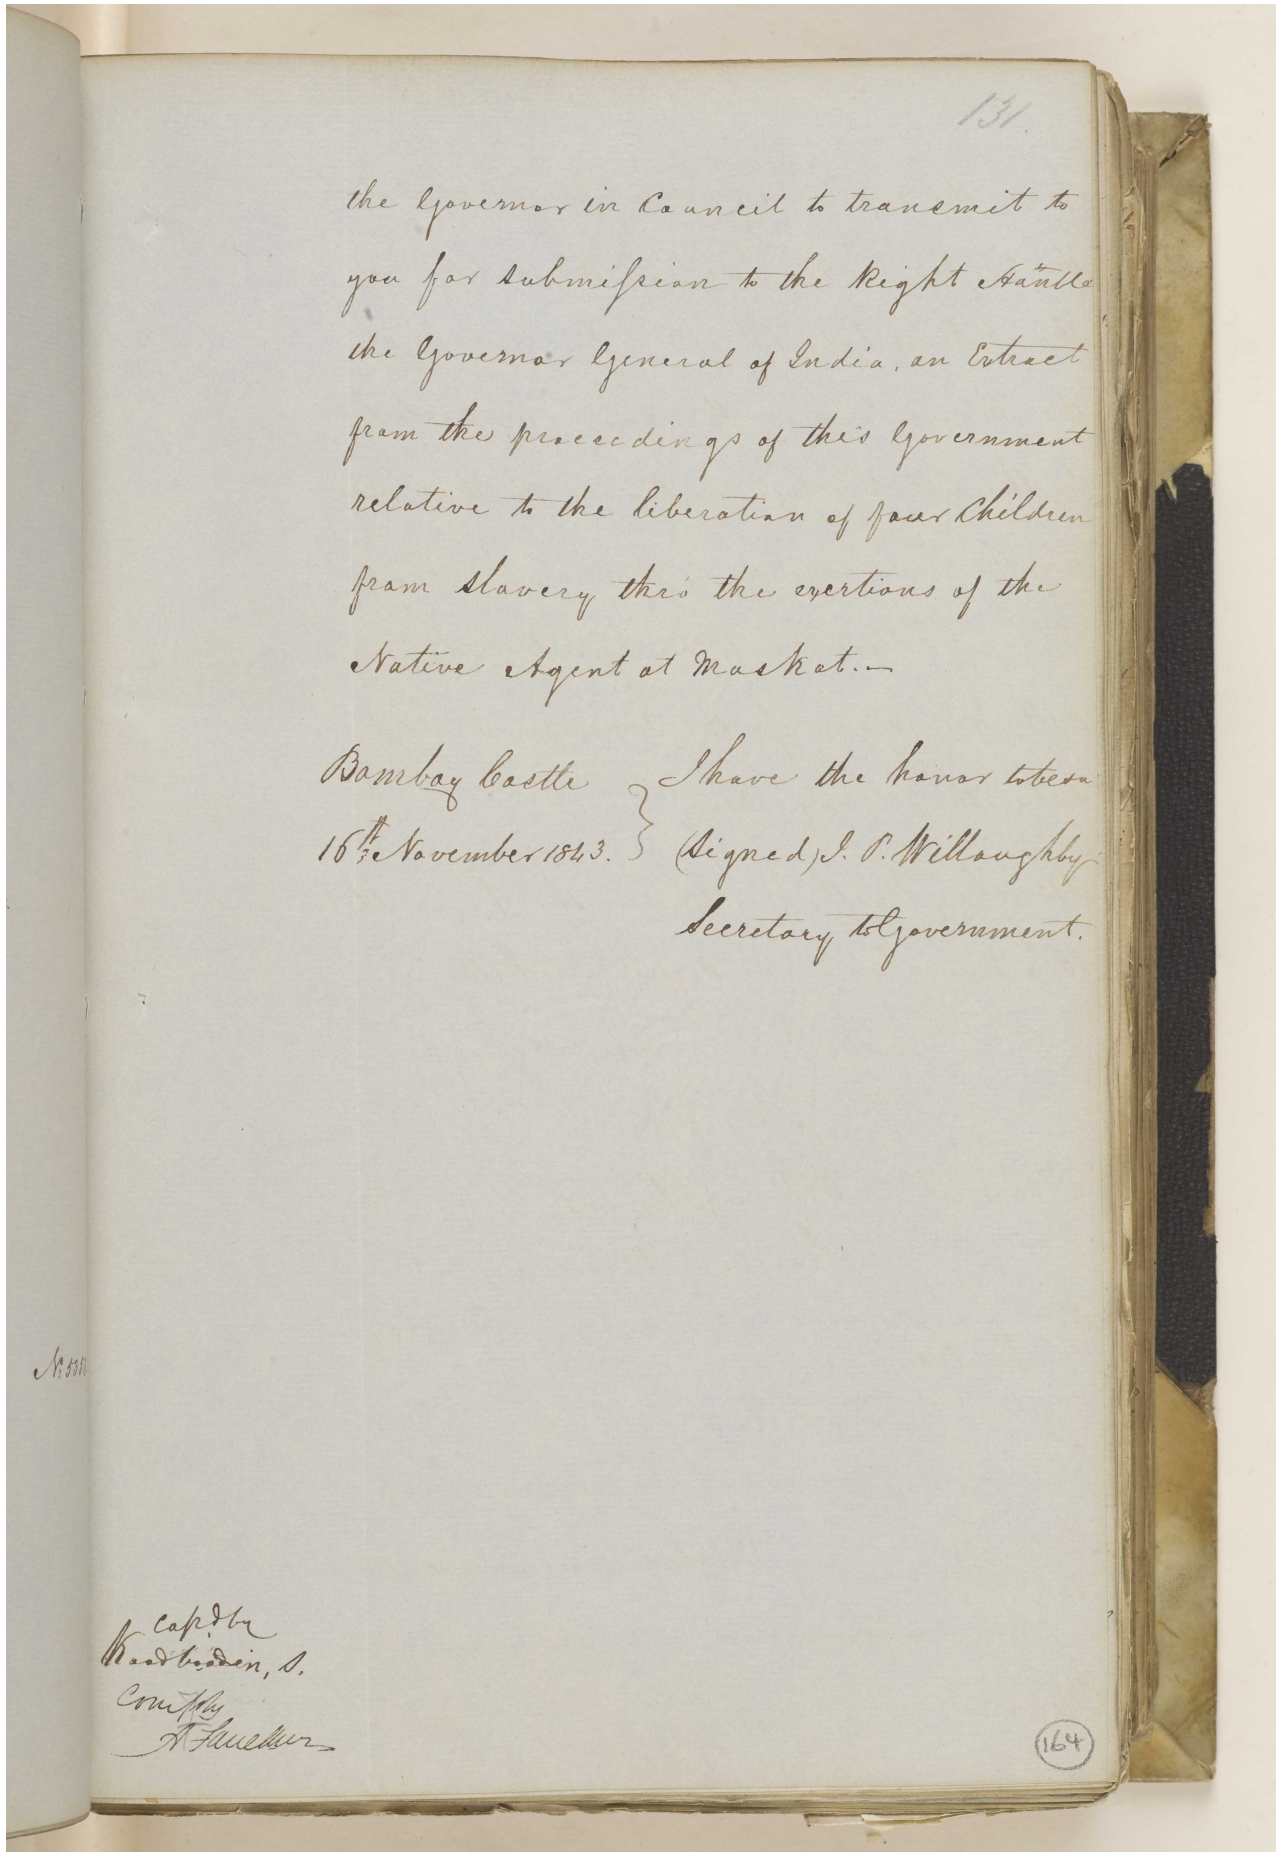 131.
the Governor in Council to transmit to
you for submission to the Right Honble
the Governor General of India, an Extract
from the proceedings of this Government
relative to the liberation of four Children
from slavery thro' the exertions of the
Native Agent at Maskat.—
Bombay Castle } I have the honor to be &a
16th November 1843. (Signed) J. P. Willoughby
Secretary to Government.
Copd by
Comp by
164